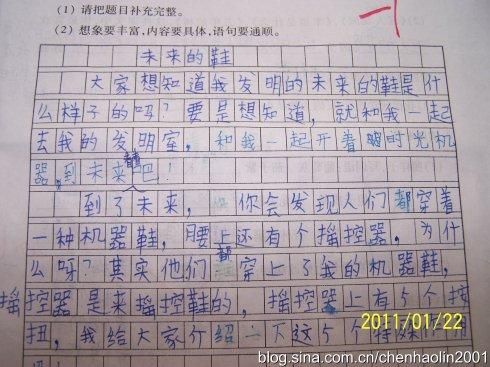 (1) 请把题目补充完整。
(2) 想象要丰富,内容要具体,语句要通顺。
未来的鞋
大家想知道我发明的未来的鞋是什
么样子的吗?要是想知道,就和我一起
去我的发明室,和我一起开着时光机
器,到未来看看吧!
到了未来,你会发现人们都穿着
一种机器鞋,腰上还有个摇控器,为什
么呀?其实他们都穿上了我的机器鞋,
摇控器是来摇控鞋的,摇控器上有5个按
扭,我给大家介绍一下这5个特殊
2011/01/22
blog.sina.com.cn/chenhaolin2001